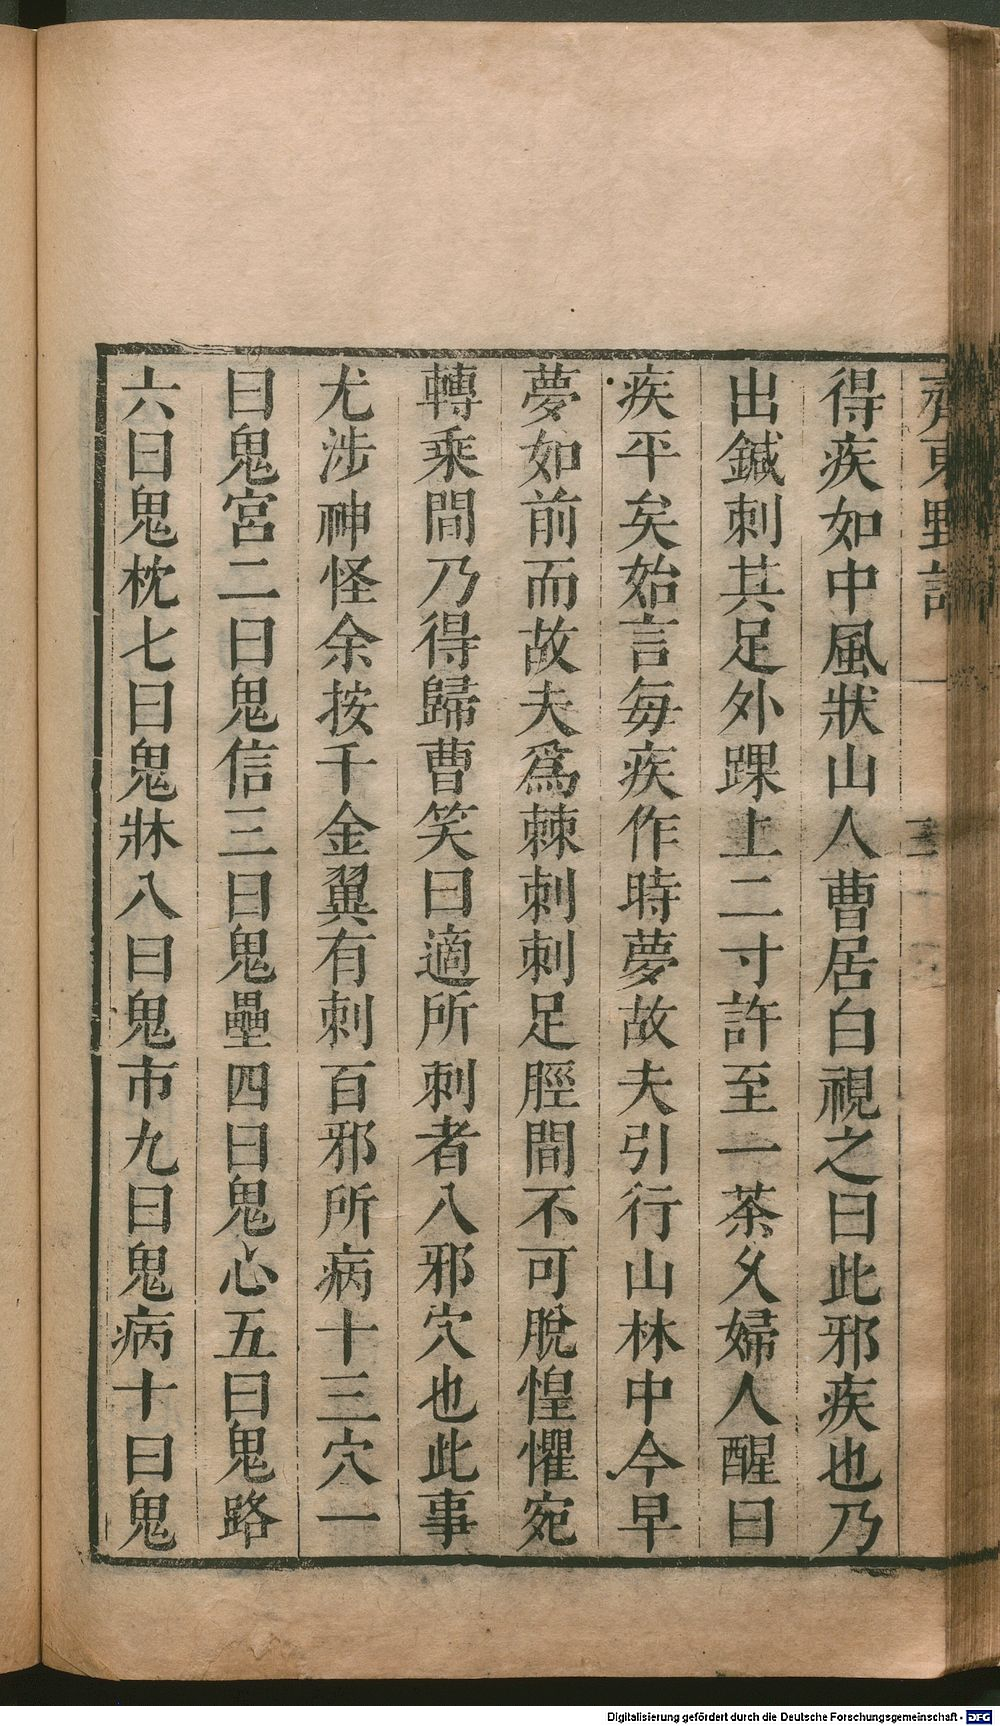 齊東野語
得疾如中風狀山人曹居白視之曰此邪疾也乃
出鍼刺其足外踝上二寸許至一茶久婦人醒曰
疾平矣始言每疾作時夢故夫引行山林中今早
夢如前而故夫爲棘刺刺足脛間不可脫惶懼宛
轉乘間乃得歸曹笑曰適所刺者八邪穴也此事
尤涉神怪余按千金翼有刺百邪所病十三穴一
曰鬼宮二曰鬼信三曰鬼壘四曰鬼心五曰鬼路
六曰鬼枕七曰鬼牀八曰鬼市九曰鬼病十曰鬼
Digitalisierung gefördert durch die Deutsche Forschungsgemeinschaft - DFG